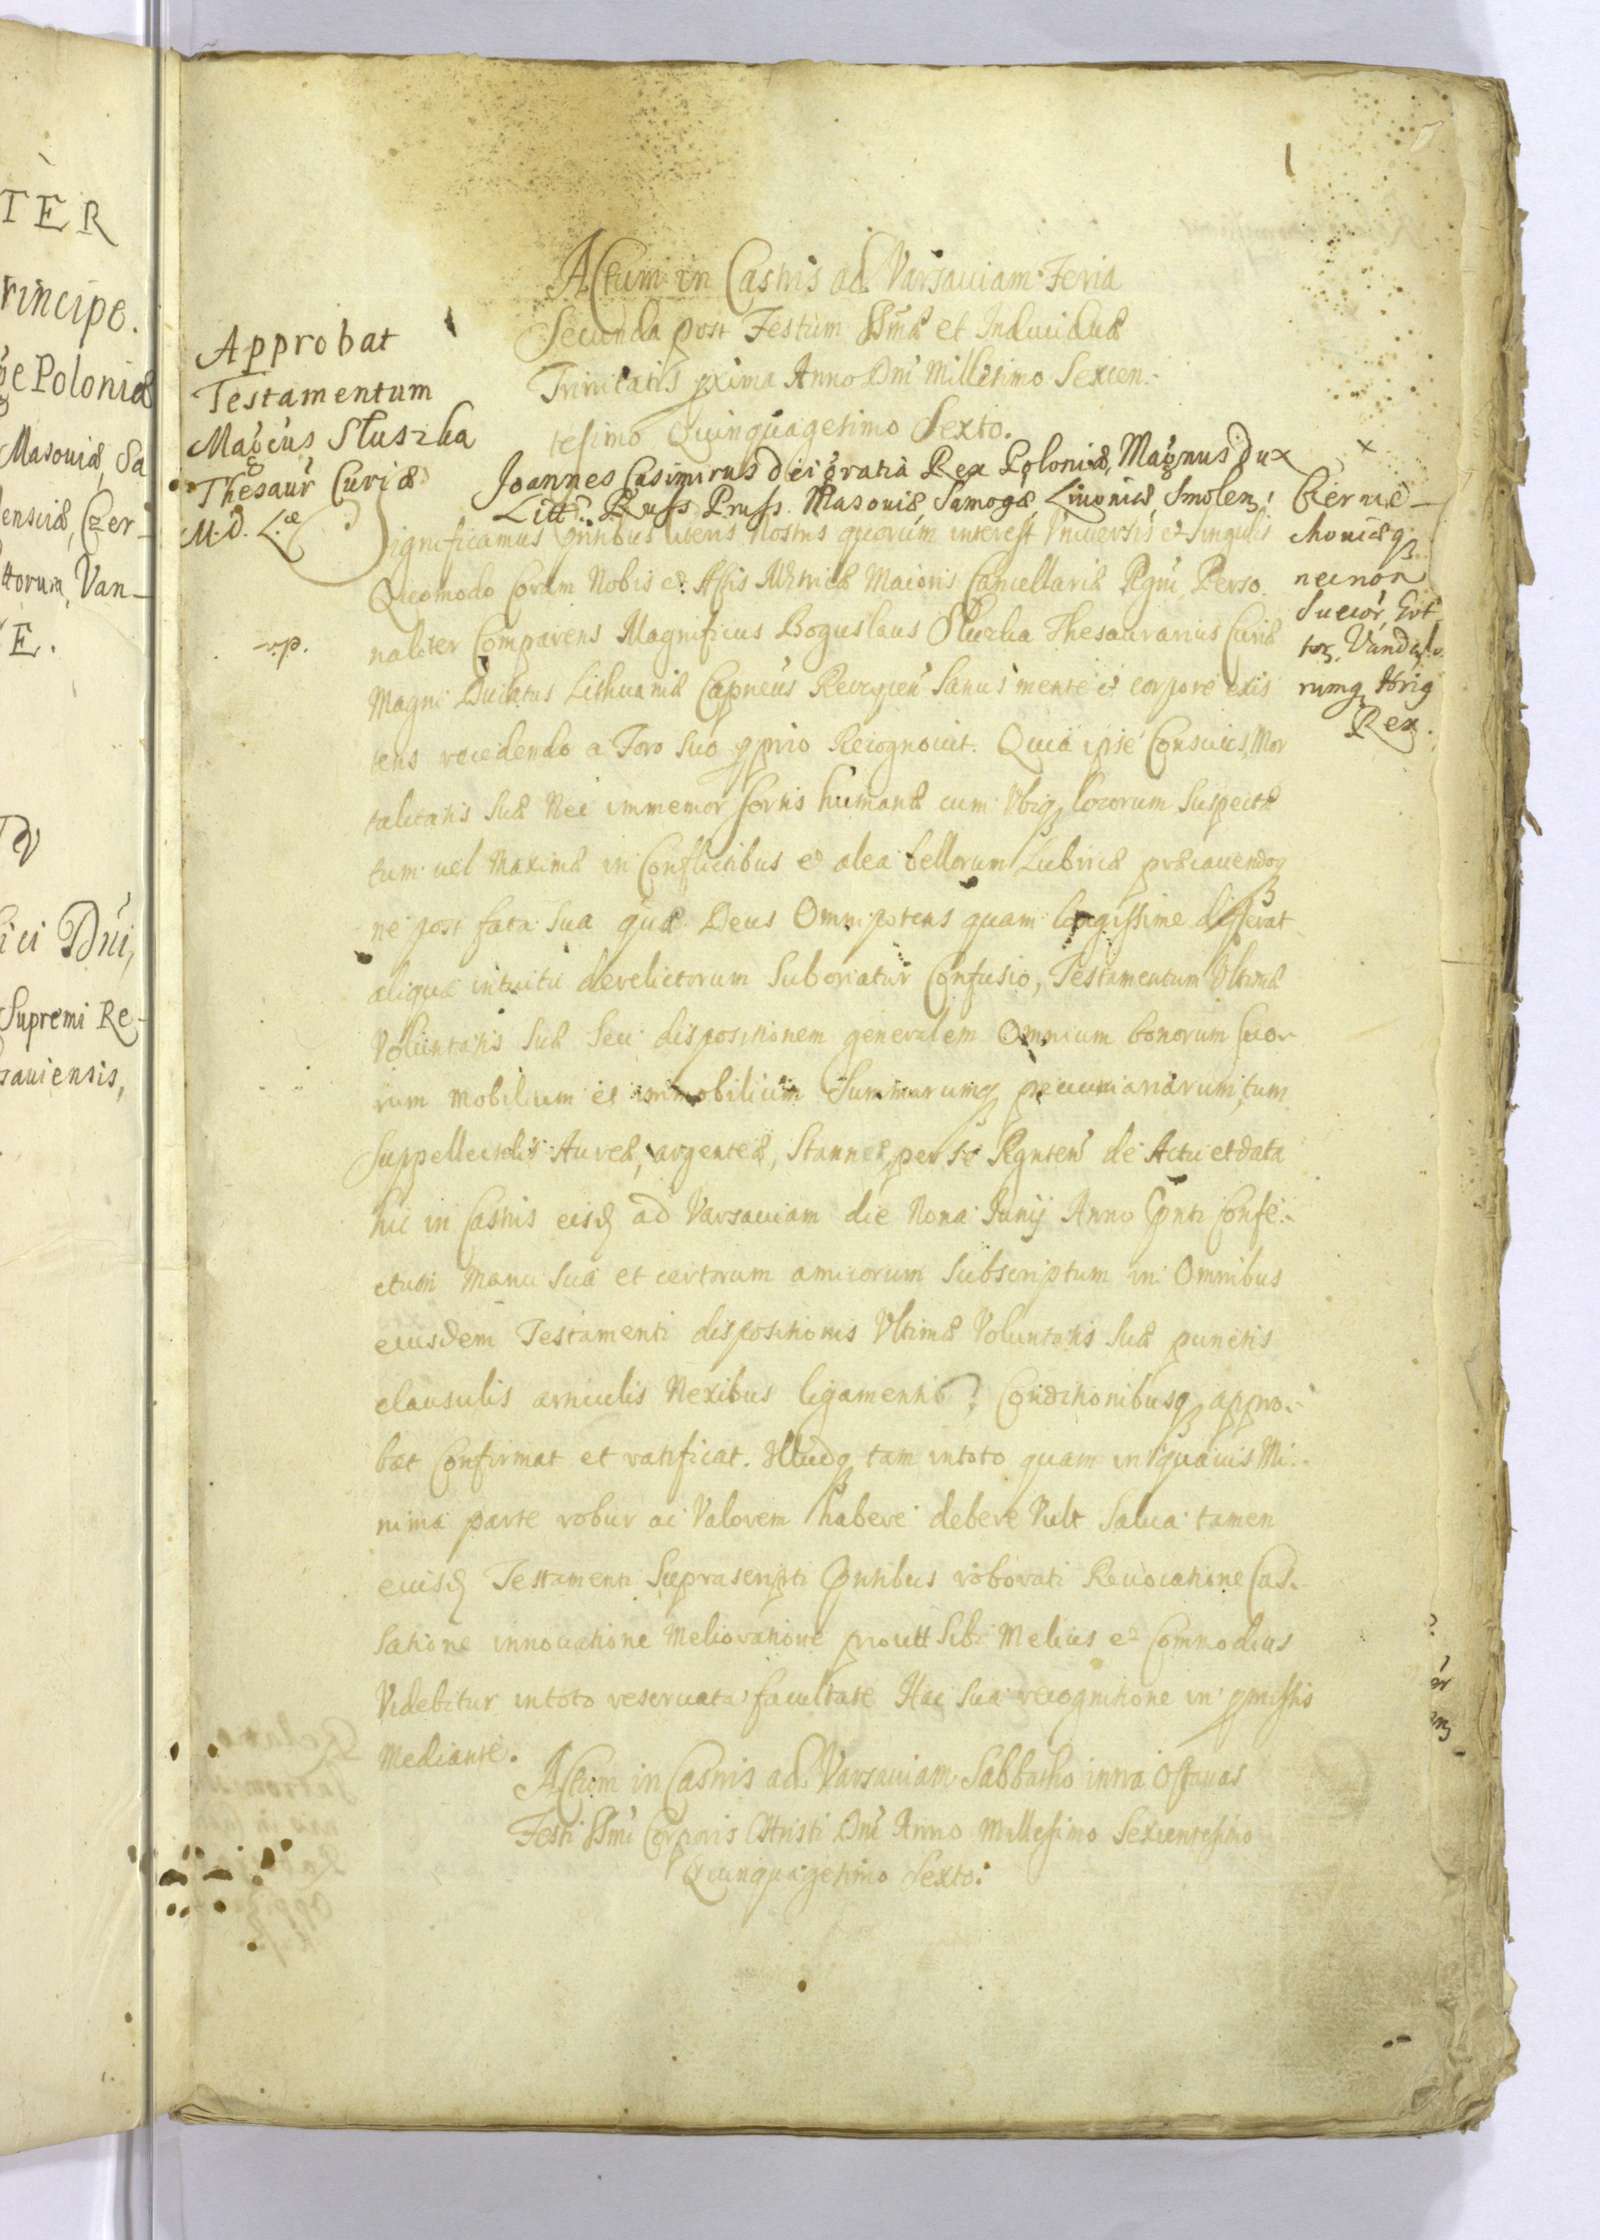 TER
rincipe.
ge Poloniæ
Masouiæ, Sa
ensciæ, Czer-
ttorum, Van-
E.
ici Dni,
Supremi Re-
sauiensis,
1
Actum in Castris ad Varsauiam Feria
Secunda post Festum SSmæ et Indiuiduæ
Trinitatis pxima Anno Dni Millesimo Sexcen-
tesimo Quinquagesimo Sexto.
Approbat
Testamentum
Magcus Słuszka
Thesaur Curiæ
M. D. L.æ
-rp.
Joannes Casimirus Dei gratia Rex Poloniæ, Magnus Dux
Litt. Russ Pruss. Masouiæ, Samogæ, Liuoniæ, Smolen,
Czernie-
chouiæq
necnon
Suecor, Got
tor, Vandalo
rumq Hrig
Rex.
Significamus Pntibus literis Nostris quorum interest Vniuersis et Singulis
Quomodo Coram Nobis et Actis Metricæ Maioris Cancellariæ Regni, Perso
naliter Comparens Magnificus Boguslaus Słuzka Thesaurarius Curiæ
Magni Ducatus Lithuaniæ Sanus mente et corpore exis
tens recedendo a Foro Suo pprio Recognouit. Quia ipse Conscius Mor
talitatis Suæ Nec immemor sortis humanæ cum Vbiq locorum Suspectæ
tum uel Maximæ in Conflictibus et alea bellorum Lubricæ præcauendoq
ne post fata Sua quæ Deus Omnipotens quam longissime differat
aliqua intuitu derelictorum Suboriatur Confusio, Testamentum Vltimæ
Voluntatis Suæ Seu dispositionem generalem Omnium bonorum Suor
rum Mobilium et immobilium Summarumq pecuniariarum, tum
Suppellectilis Aureæ, argenteæ, Stanneæ per se Rgnten de Actu et data
hic in Castris eisd ad Varsauiam die Nona Junij Anno Pnti Confe-
ctum Manu Sua et certorum amicorum Subscriptum in Omnibus
eiusdem Testamenti dispositionis Vltimæ Voluntatis Suæ punctis
clausulis articulis Nexibus ligamentis Conditionibusq appro-
bat Confirmat et ratificat. Illudq tam intoto quam in quauis Mi-
nima parte robur ac Valorem habere debere Vult Salua tamen
eiusd Testamenti Suprascripti Pntibus roborati Reuocatione Cas-
satione innouatione Melioratione proutt Sibi Melius et Commodius
Videbitur intoto reseruata facultate Hac Sua recognitione in pmissis
Mediante.
Actum in Castris ad Varsauiam Sabbatho intra Octauas
Festi SSmi Corporis Christi Dni Anno Millesimo Sexcentesimo
Quinquagesimo Sexto.